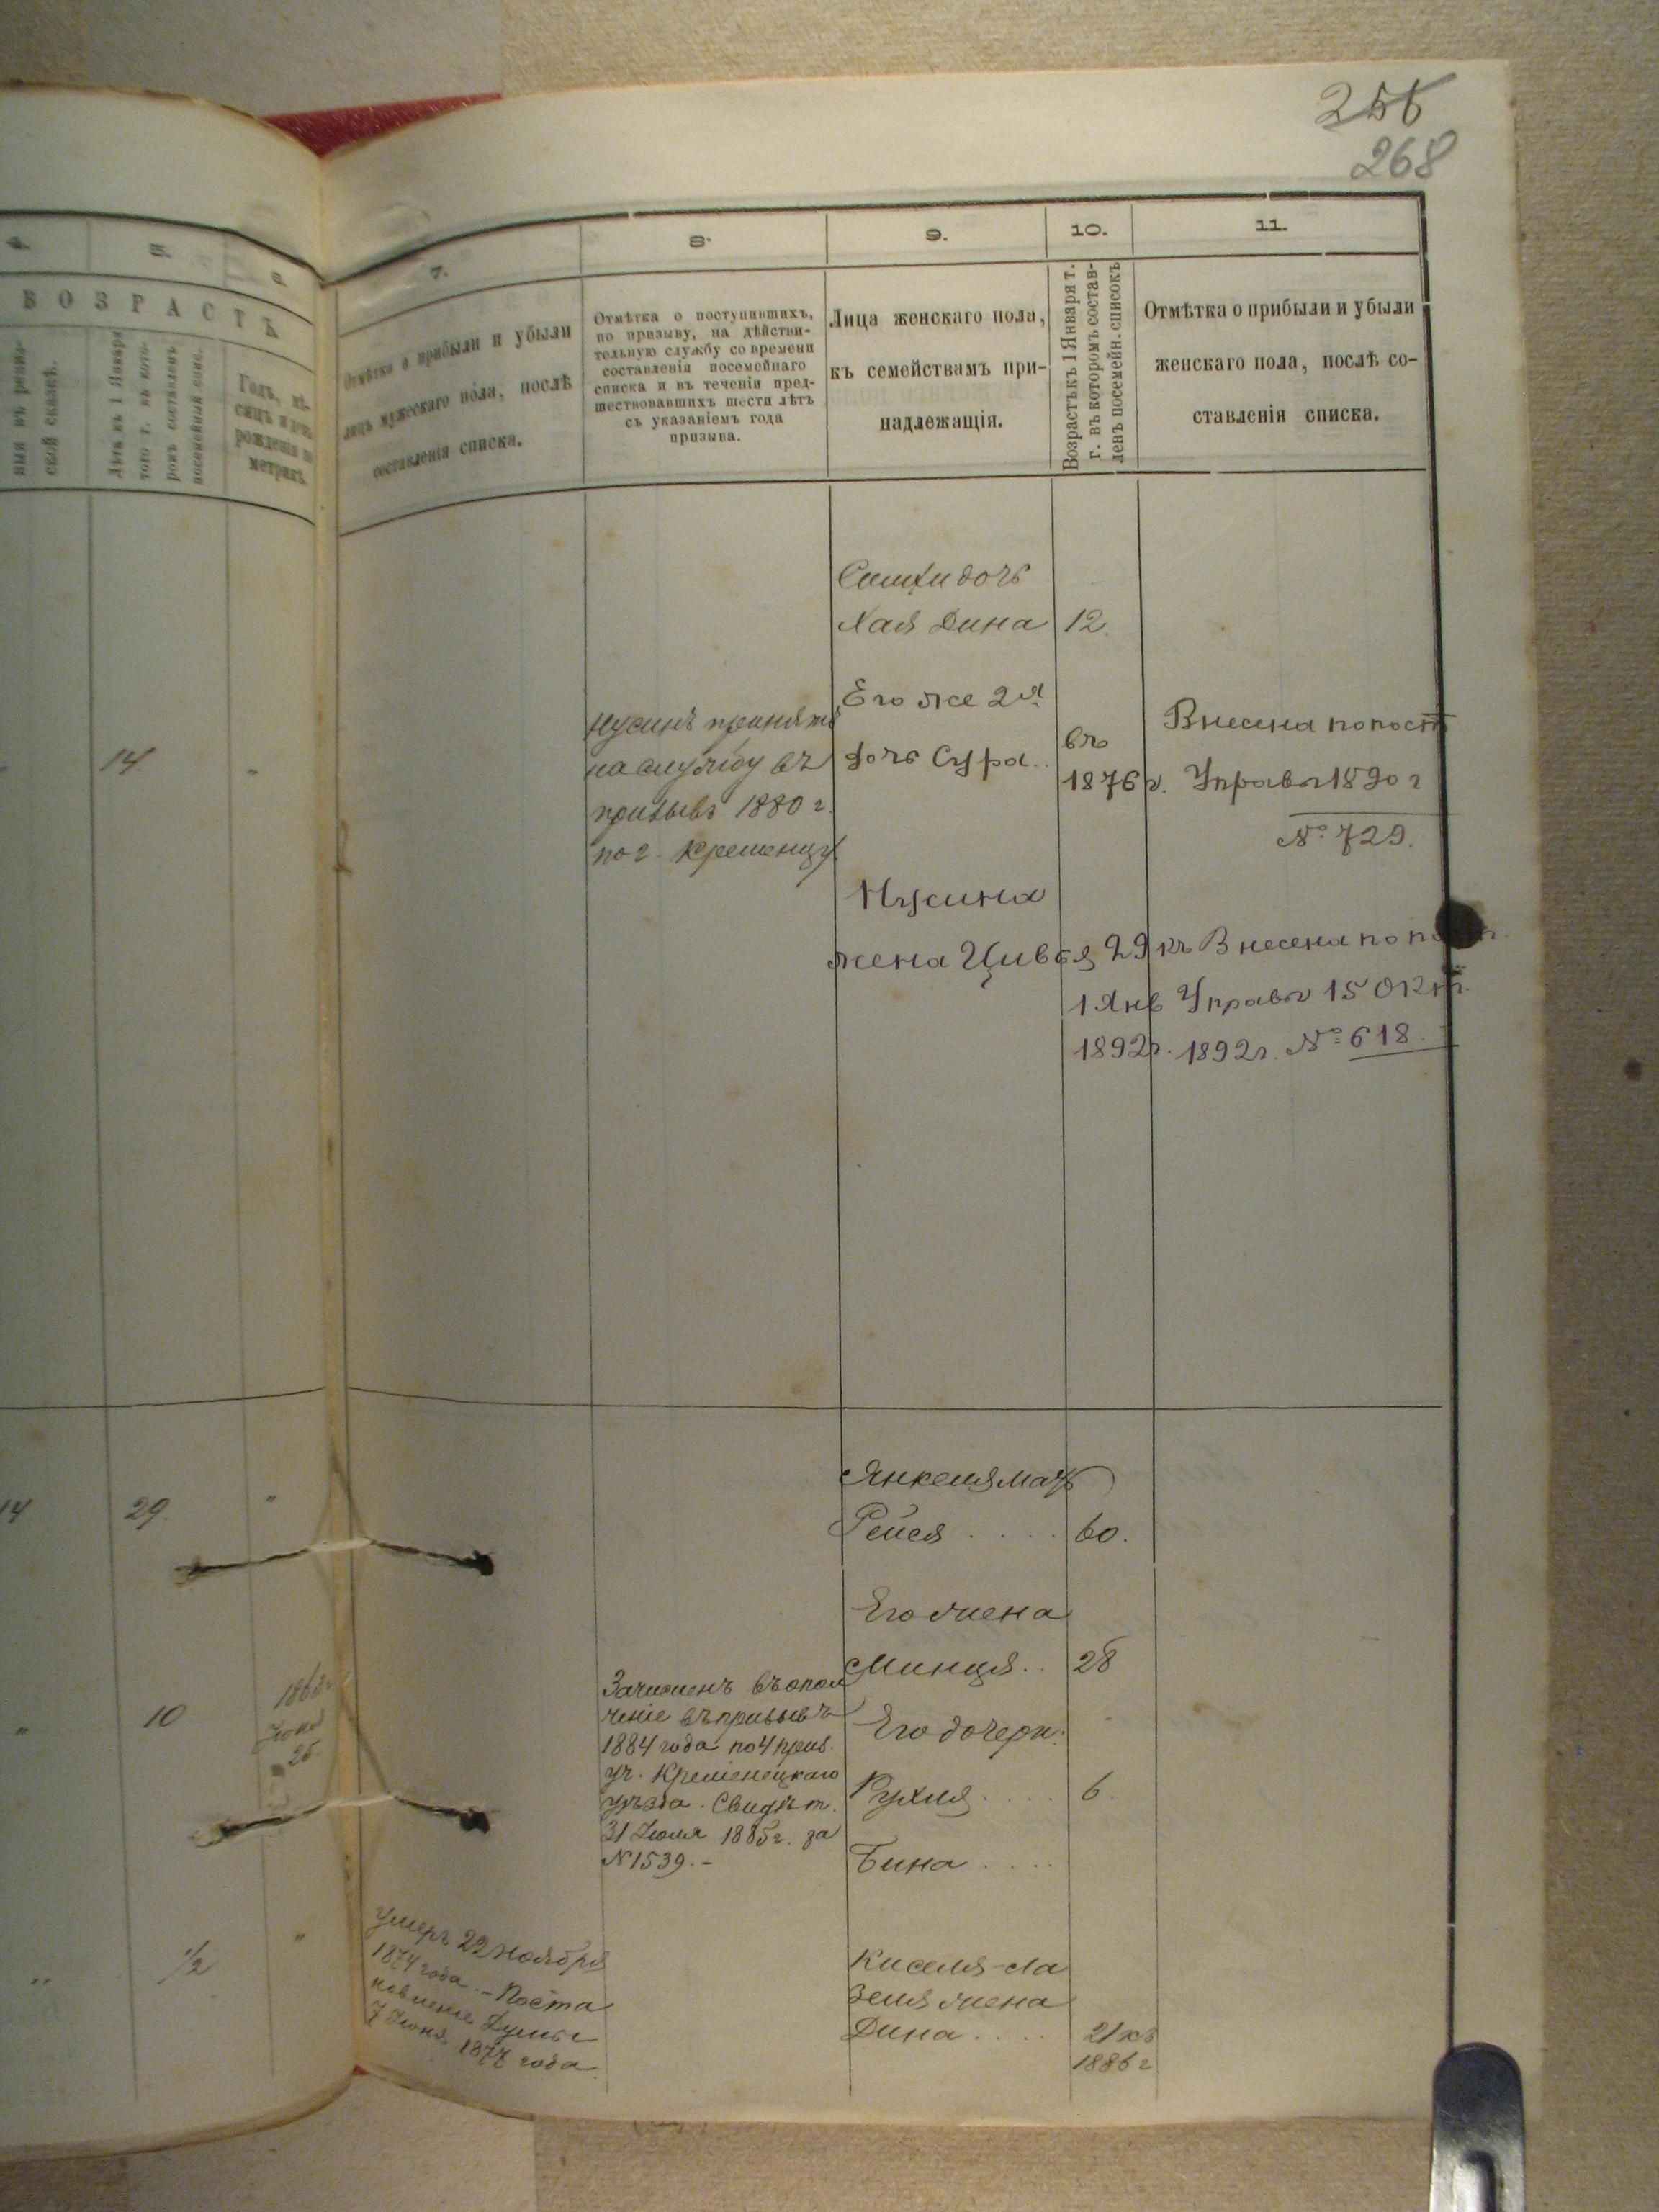 255
268
4.
5.
6.
7.
8.
9.
10.
11.
ВОЗРАСТЪ
Лѣта къ 1 Января
того г. въ кото-
ромъ составленъ
посемейный спис.
Годъ, мѣ-
сяцъ и день
рожденія по
метрик.
Отмѣтка о прибыли и убыли
лицъ мужескаго пола, послѣ
составленія списка.
Отмѣтка о поступившихъ,
по призыву, на дѣйстви-
тельную службу со времени
составленія посемейнаго
списка и въ теченіи пред-
шествовавшихъ шести лѣтъ
съ указаніемъ года
призыва.
Лица женскаго пола,
къ семействамъ при-
надлежащія.
Возрастъ къ 1 Января т.
г. въ которомъ состав-
ленъ посемейн. списокъ
Отмѣтка о прибыли и убыли
женскаго пола, послѣ со-
ставленія списка.
дочь
Хая Дина 12.
14
Нусинъ принятъ
на службу въ
призывъ 1880 г.
по г. Кременцу
Его же 2я
дочь Сура..
въ
1876 г.
Внесена по пост
Управы 1890 г
№ 729.
Нусина
жена Цивья
29 къ
1 Янв
1892г.
Внесена по
Управы 15 Окт.
1892г. № 618.
14
29.
Янкеля мать
Рейся .... 60.
Его жена
Минця.. 28
Его дочери:
Рухля .... 6.
Бина ....
10
1863г
Июня
25
Зачисленъ въ опол
ченіе въ призывъ
1884 года по 4 приз.
уч. Кременецкаго
уѣзда. Свидѣт.
31 Июля 1885 г. за
N 1539.-
1/2
Умеръ 22 Ноября
1874 года. - Поста
новленіе Думы
7 Июня 1877 года.
Киселя-Ла
зеля жена
Дина .... 21 къ
1886 г